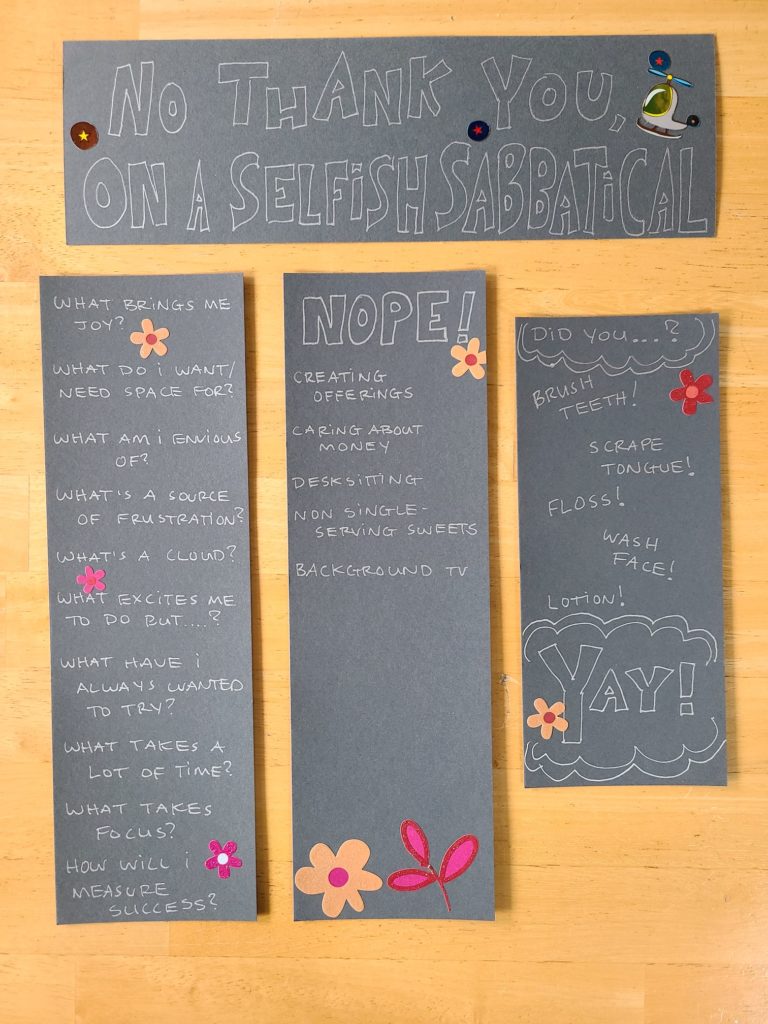 No THANK YOU,
ON A SELFiSH SABBATiCAL
WHAT BRiNGS ME
JOY?
WHAT DO i WANT/
NEED SPACE FOR?
WHAT AM i ENVIOUS
OF?
WHAT'S A SOURCE
OF FRUSTRATION?
WHAT'S A CLOUD?
WHAT EXCITES ME
TO DO BUT....?
WHAT HAVE i
ALWAYS WANTED
TO TRY?
WHAT TAKES A
LOT OF TIME?
WHAT TAKES
FOCUS?
HOW WILL i
MEASURE
SUCCESS?
NOPE!
CREATING
OFFERINGS
CARING ABOUT
MONEY
DESKSITTING
NON SINGLE-
SERVING SWEETS
BACKGROUND TV
(DiD YOU...?)
BRUSH
TEETH!
SCRAPE
TONGUE!
FLOSS!
WASH
FACE!
LOTION!
YAY!